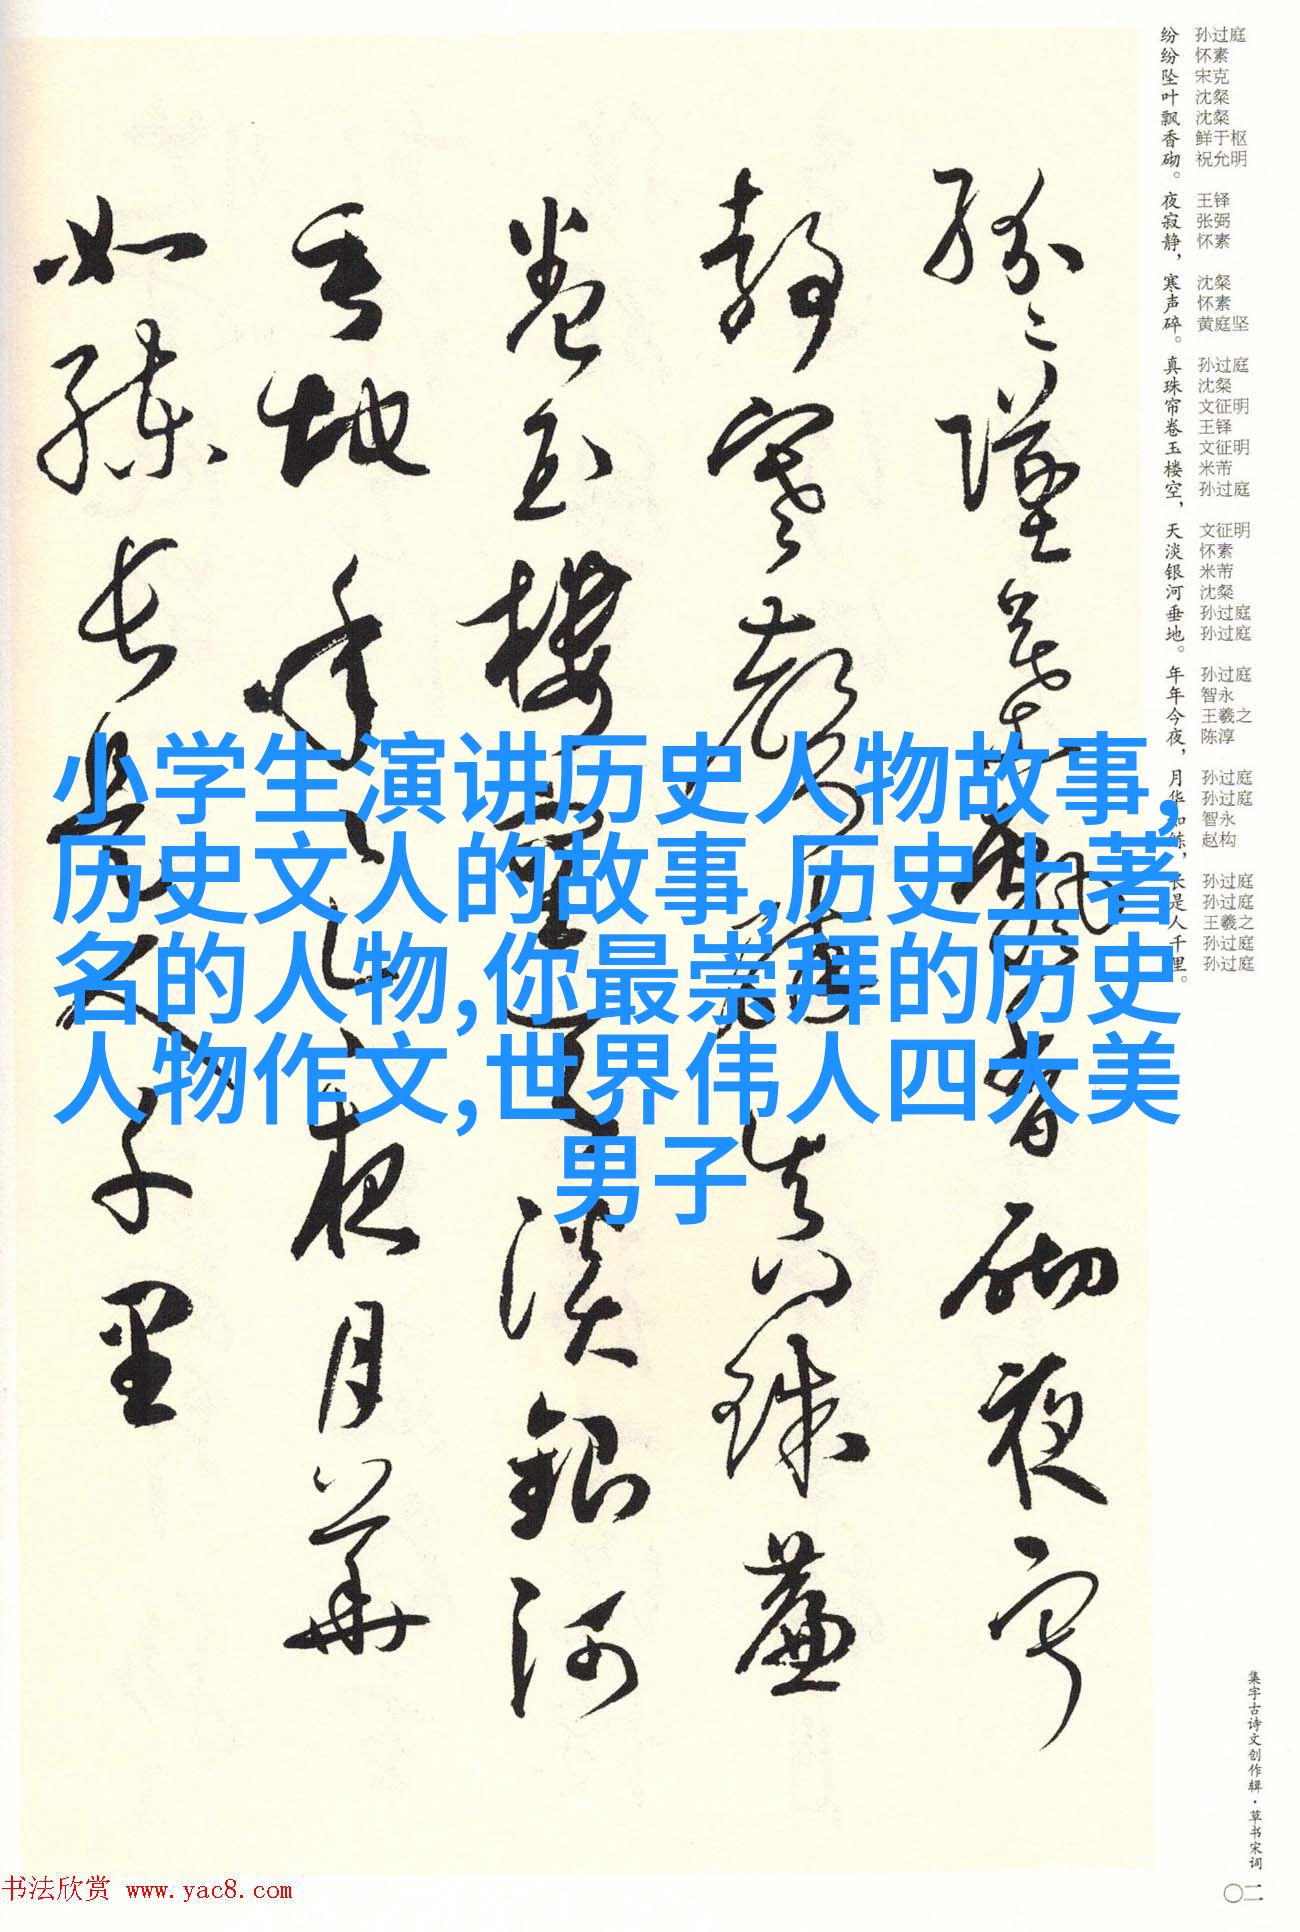 纷纷坠叶飘香砌。夜寂静，寒声碎。真珠帘卷玉楼空，天淡银河垂地。年年今夜，月华如练，长是人千里。
孙过庭 怀素 宋克 沈粲 沈粲 鲜于枢 祝允明 王铎 张弼 怀素 沈粲 怀素 黄庭坚 孙过庭 沈粲 文征明 王铎 文征明 米芾 孙过庭 文征明 怀素 米芾 沈粲 孙过庭 孙过庭 孙过庭 智永 王羲之 陈淳 孙过庭 孙过庭 智永 赵构 孙过庭 孙过庭 王羲之 孙过庭 孙过庭
紛紛墜葉飄香砌夜寂
靜寒聲碎真珠簾
卷玉樓空天淡銀河
垂地年年今夜月華
如練長是人千里
小学生演讲历史人物故事,
历史文人的故事,历史上著
名的人物,你最崇拜的历史
人物作文,世界伟人四大美
男子
集字古诗文创作辑·草书宋词
〇二
书法欣赏 www.yac8.com